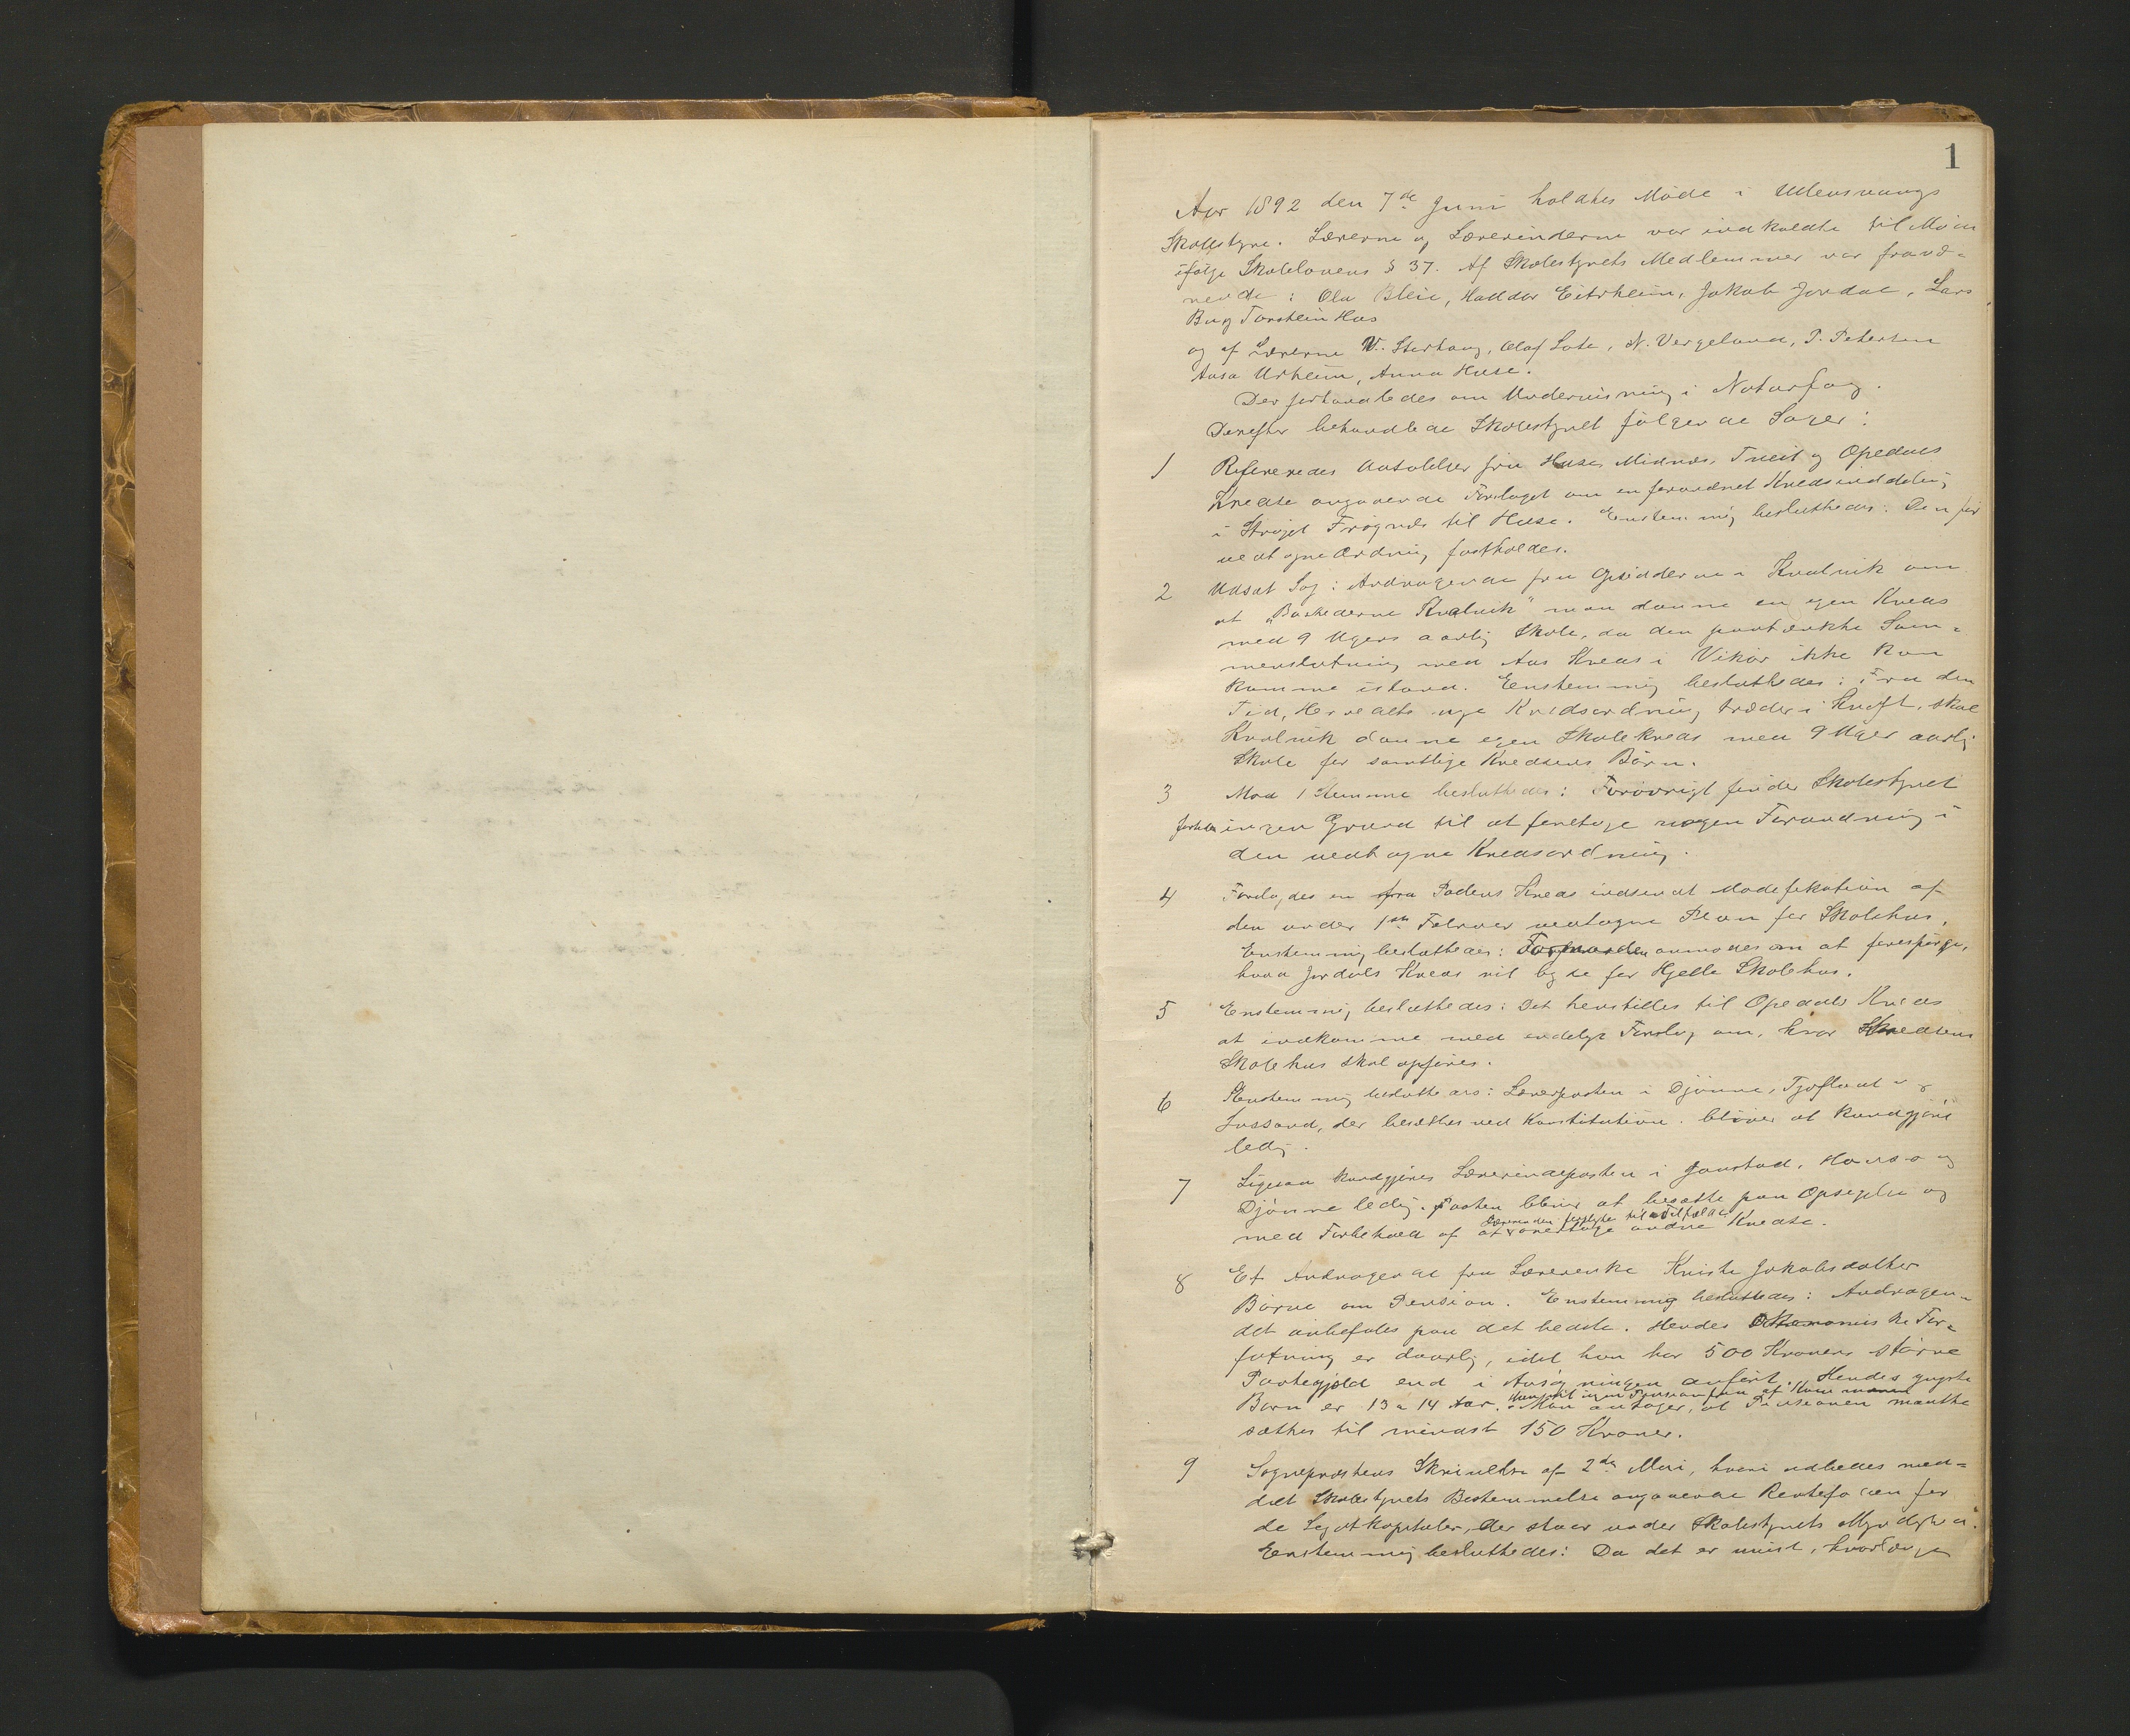 1
Aar 1892 den 7de Juni holdtes Møde i Ullensvangs
Skolestyre. Lærerne og Lærerinderne var indkaldte til
ifølge Skolelovens § 37. Af Skolestyrets Medlemmer var
: Ola Bleie, Haldor Eitrheim, Jakob Jordal, Lars
Torstein Hus
og af Lærerne Olaf Lote, N. Vergeland, P. Petersen
Aasa Urheim, Anna Huse.
Der forhandledes om Undervisning i Naturfag.
Derefter behandlede Skolestyret følgende Sager:
1 Refereredes Udtalelser fra Huse, Midnæs, Tveit og Opedals
Kredse angaaende Forslaget om en forandret Kredsinddeling
i Strøget Frøgnæs til Huse. Enstemmig besluttedes: Den før
vedtagne Ordning fastholdes.
2 Udsat Sag: Andragende fra Opsidderne i Kvalvik om
at Kvalvik" maa danne en egen Kreds
med 9 Ugers aarlig Skole, da den paatænkte Sam-
menslutning med Aas Kreds i Vikør ikke kan
komme istand. Enstemmig besluttedes: Fra den
Tid, Herredets nye Kredsordning træder i Kraft, skal
Kvalvik danne egen Skolekreds med 9 Uger aarlig
Skole for samtlige Kredsens Børn.
3 Mod 1 Stemme besluttedes: Forøvrigt finder Skolestyret
ingen Grund til at foretage nogen Forandring i
den vedtagne Kredsordning.
4 Forelagdes en fra Kreds indsendt Modefikation af
den under 1ste Februar vedtagne Plan for Skolehus.
Enstemmig besluttedes: Formanden anmodes om at forespørge,
hvad Jordals Kreds vil byde for Hjelle Skolehus.
5 Enstemmig besluttedes: Det henstilles til Opedals Kreds
at indkomme med endeligt Forslag om, hvor Kredsens
Skolehus skal opføres.
6 Enstemmig besluttedes: Lærerposten i Djønne, Tjoflaat og
Jussand, der besættes ved Konstitution, bliver at kundgjøre
ledig.
7 Ligesaa kundgjøres Lærerindeposten i Jaastad, og
Djønne ledig. Posten bliver at besætte paa Opsigelse og
Lærerinden til
med Forbehold af at overtage andre Kredse.
8 Et Andragende fra Lærerenke Kristi Jakobsdatter
Børve om Pension. Enstemmig besluttedes: Andragen-
det anbefales paa det bedste. Hendes Økonomiske For-
fatning er daarlig, idet hun har 500 Kroner større
Pantegjæld end i Ansøgningen anført. Hendes yngste
Hun vil ingen Pension faa af
Barn er 13 a 14 Aar. Man antager, at Pensionen maatte
sættes til mindst 150 Kroner.
9 Sognepræstens Skrivelse af 2den Mai, hvori udbedes med-
delt Skolestyrets Bestemmelse angaaende Rentefoden for
de Legatkapitaler, der staar under Skolestyrets
Enstemmig besluttedes: Da det er uvist, hvorlænge